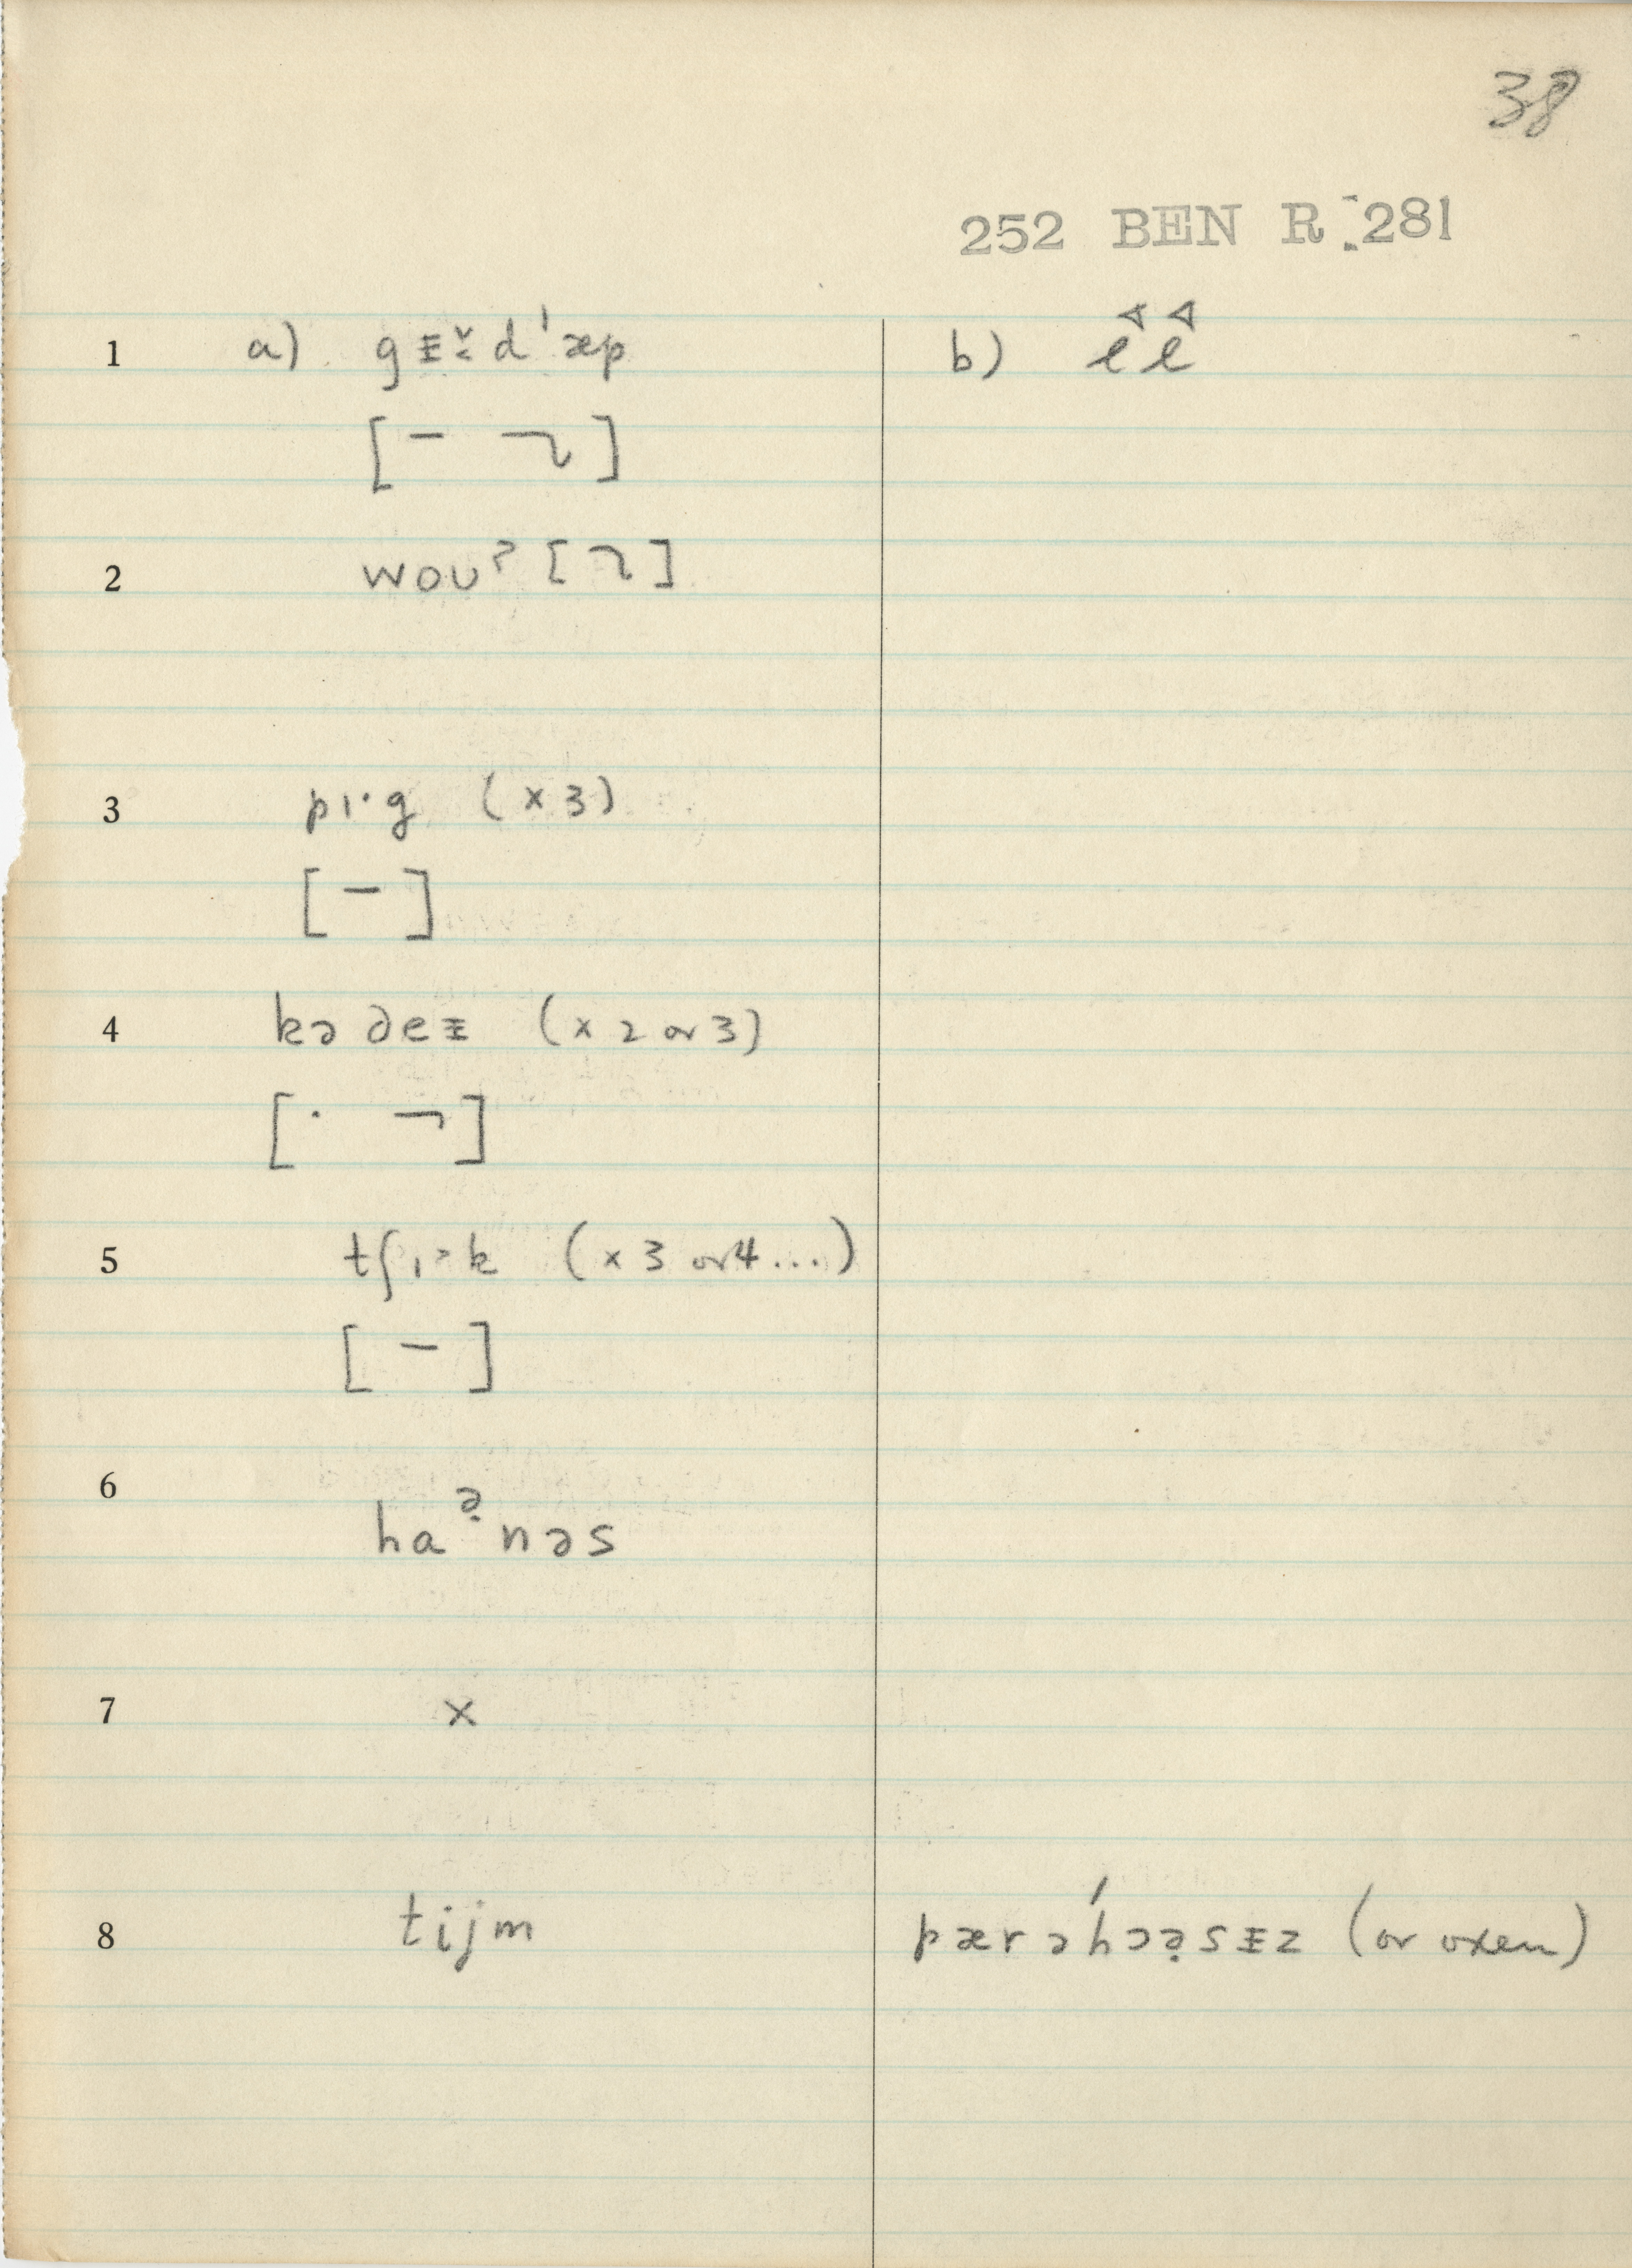 38
252 BEN R 281
1 a) gᵻ̌d'æp b) ll
[ ]
2 wou? [ ]
3 pɪ·g (x 3)
[– ]
4 kə ∂eᵻ (x 2 or 3)
[· ¬]
5 tʃɪ˃k (x 3 or 4...)
[ – ]
6 haə̣nəs
7 x
8 tijm pærə'hɔə̣sᵻz (or oxen)